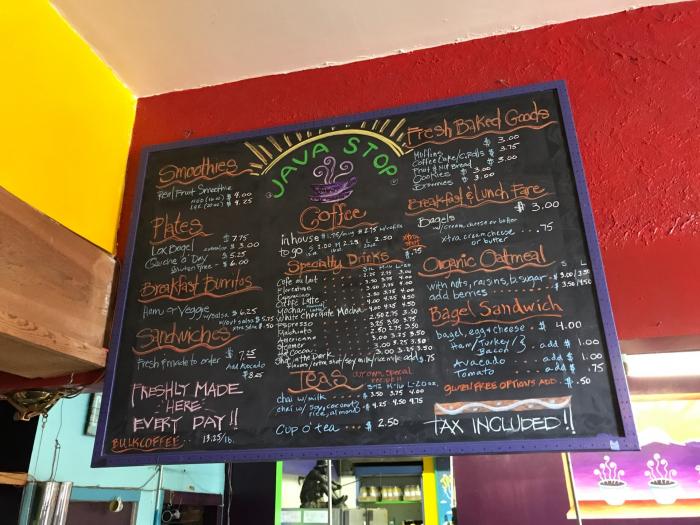 JAVA STOP
Smoothies
Real Fruit Smoothie
MED (16oz) $4.00
LRG (20oz) $4.25
Plates
Lox Bagel $7.75
$3.00
Quiche o' Day $5.25
gluten free $6.00
Breakfast Burritos
Ham or Veggie
w/salsa $6.25
w/out salsa $5.75
xtra salsa $.50
Sandwiches
Fresh & made to order $7.25
Add Avocado
$8.25
FRESHLY MADE
"HERE"
EVERY DAY!!
BULK COFFEE 13.25/lb.
Coffee
in house
to go S 2.00 M 2.25 L 2.50
xtra shot
$.75
Specialty Drinks
Café au Lait
Florentine
Cappuccino
Caffe Latte
Mocha
White Chocolate Mocha
Espresso
Macchiato
Americano
Steamer
Hot Cocoa
Shot in the Dark
flavors/extra shot/soy milk/rice milk add $.75
Teas
our own special
recipe!!
chai w/milk 3.50 3.75 4.00
chai w/ soy, coconut,
rice, almond 4.25 4.50 4.75
Cup o' tea $2.50
Fresh Baked Goods
Muffins $3.00
Coffee Cake/C. Rolls $3.75
Fruit & Nut Bread $3.00
Cookies $3.00
Brownies $3.00
Breakfast & Lunch Fare
Bagels $3.00
w/cream cheese or butter
xtra cream cheese
or butter .75
Organic Oatmeal
S L
with nuts, raisins, b.sugar $3.00/3.50
add berries $3.50/4.50
Bagel Sandwich
bagel, egg + cheese $4.00
Ham/Turkey/
Bacon } add $1.00
Avocado add $1.00
Tomato add $.75
GLUTEN FREE OPTIONS ADD $.50
TAX INCLUDED!!